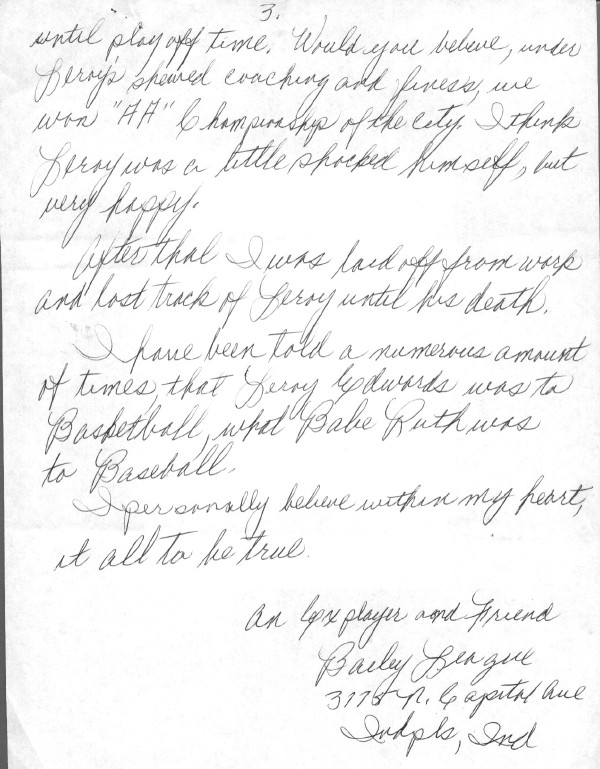 3.
until "play off time. Would you believe, under
Leroy's shewed coaching and finess, we
won "AA" Championship of the city. I think
Leroy was a little shocked himself, but
very happy.
After that I was laid off from work
and lost track of Leroy until his death.
I have been told a numerous amount
of times, that Leroy Edwards was to
Basketball, what Babe Ruth was
to Baseball.
I personally believe within my heart,
it all to be true.
An Ex player and Friend
Bailey League
N. Capital Ave
Indpls, Ind